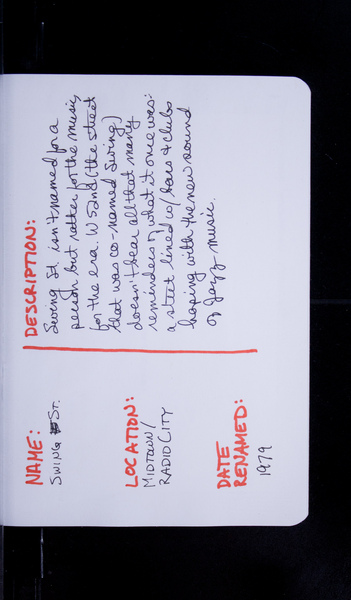 NAME:
SWING ST.
LOCATION:
MIDTOWN/
RADIO CITY
DATE
RENAMED:
1979
DESCRIPTION:
Swing St. isn't named for a
person but rather for the music,
for the era. W 52nd (the street
that was co-named Swing)
doesn't bear all that many
reminders of what it once was:
a street lined w/ bars & clubs
hoping with the new sound
of Jazz music.